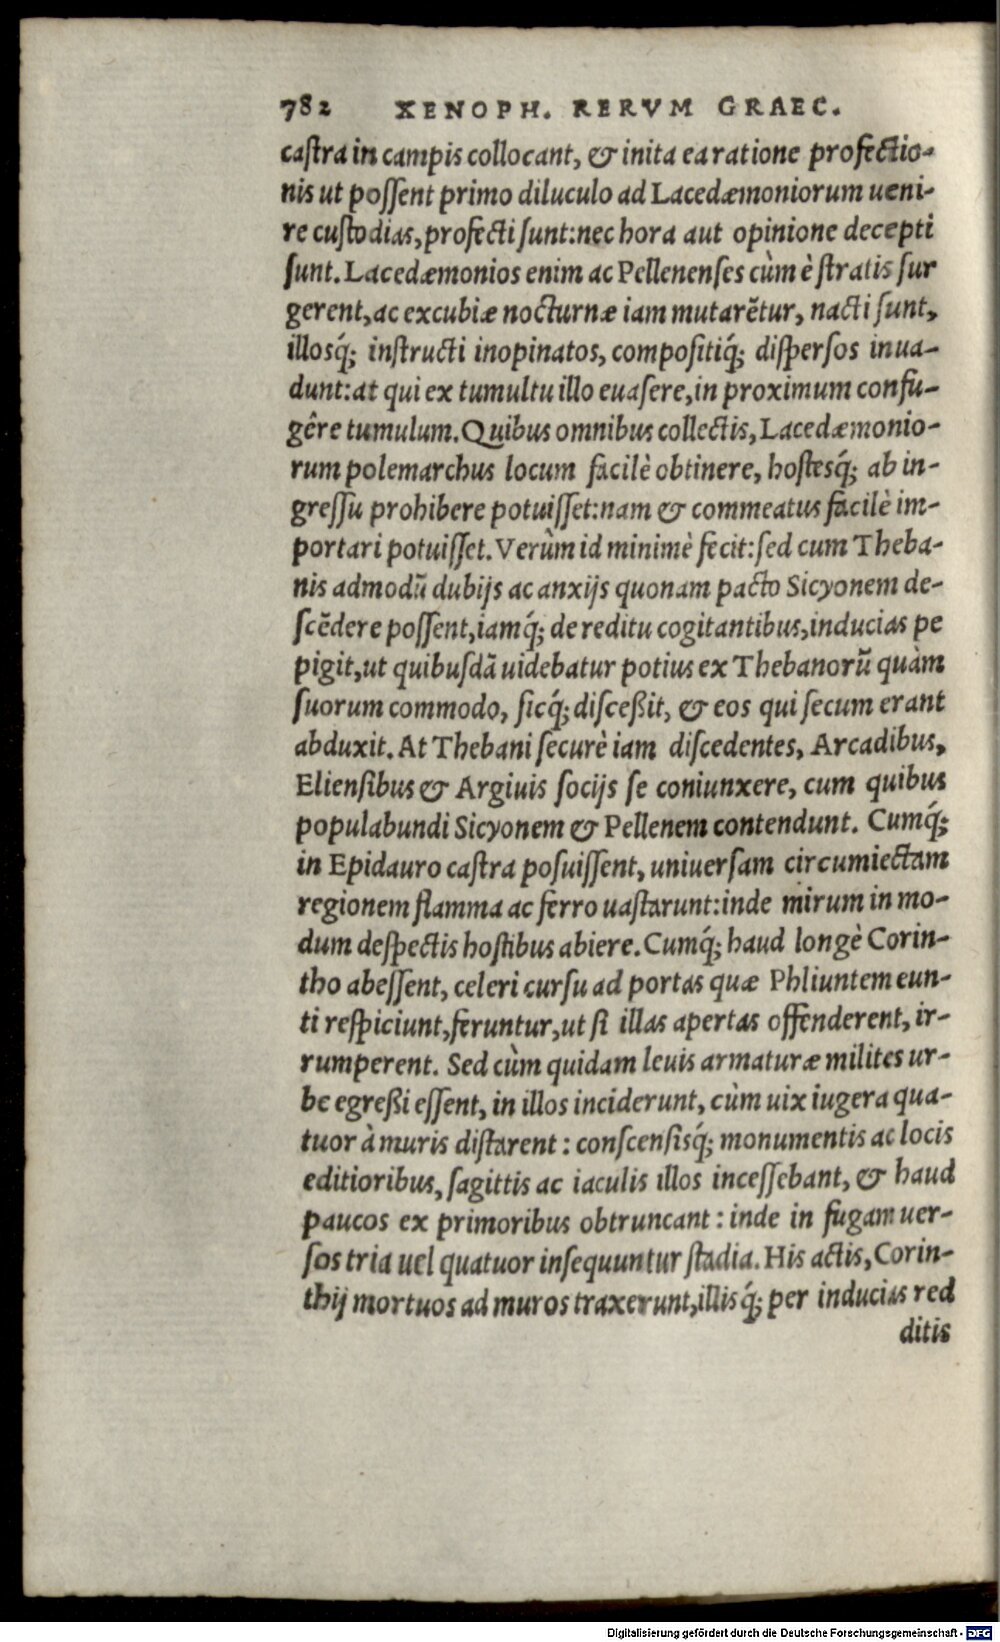 782 XENOPH. RERVM GRAEC.
caſtra in campis collocant, & inita ea ratione profectio-
nis ut poſſent primo diluculo ad Lacedæmoniorum ueni-
re cuſtodias, profecti ſunt: nec hora aut opinione decepti
ſunt. Lacedæmonios enim ac Pellenenſes cùm è ſtratis ſur
gerent, ac excubiæ nocturnæ iam mutarētur, nacti ſunt,
illosq́; inſtructi inopinatos, compoſitiq́; diſperſos inua-
dunt: at qui ex tumultu illo euaſere, in proximum confu-
gêre tumulum. Quibus omnibus collectis, Lacedæmonio-
rum polemarchus locum facilè obtinere, hoſtesq́; ab in-
greſſu prohibere potuiſſet: nam & commeatus facilè im-
portari potuiſſet. Verùm id minimè fecit: ſed cum Theba-
nis admodū dubijs ac anxijs quonam pacto Sicyonem de-
ſcēdere poſſent, iamq́; de reditu cogitantibus, inducias pe
pigit, ut quibuſdā uidebatur potius ex Thebanorū quàm
ſuorum commodo, ſicq́; diſceßit, & eos qui ſecum erant
abduxit. At Thebani ſecurè iam diſcedentes, Arcadibus,
Elienſibus & Argiuis ſocijs ſe coniunxere, cum quibus
populabundi Sicyonem & Pellenem contendunt. Cumq́;
in Epidauro caſtra poſuiſſent, uniuerſam circumiectam
regionem flamma ac ferro uaſtarunt: inde mirum in mo-
dum deſpectis hoſtibus abiere. Cumq́; haud longè Corin-
tho abeſſent, celeri curſu ad portas quæ Phliuntem eun-
ti reſpiciunt, feruntur, ut ſi illas apertas offenderent, ir-
rumperent. Sed cùm quidam leuis armaturæ milites ur-
be egreßi eſſent, in illos inciderunt, cùm uix iugera qua-
tuor à muris diſtarent: conſcenſisq́; monumentis ac locis
editioribus, ſagittis ac iaculis illos inceſſebant, & haud
paucos ex primoribus obtruncant: inde in fugam uer-
ſos tria uel quatuor inſequuntur ſtadia. His actis, Corin-
thij mortuos ad muros traxerunt, illisq́; per inducias red
ditis
Digitalisierung gefördert durch die Deutsche Forschungsgemeinschaft - DFG